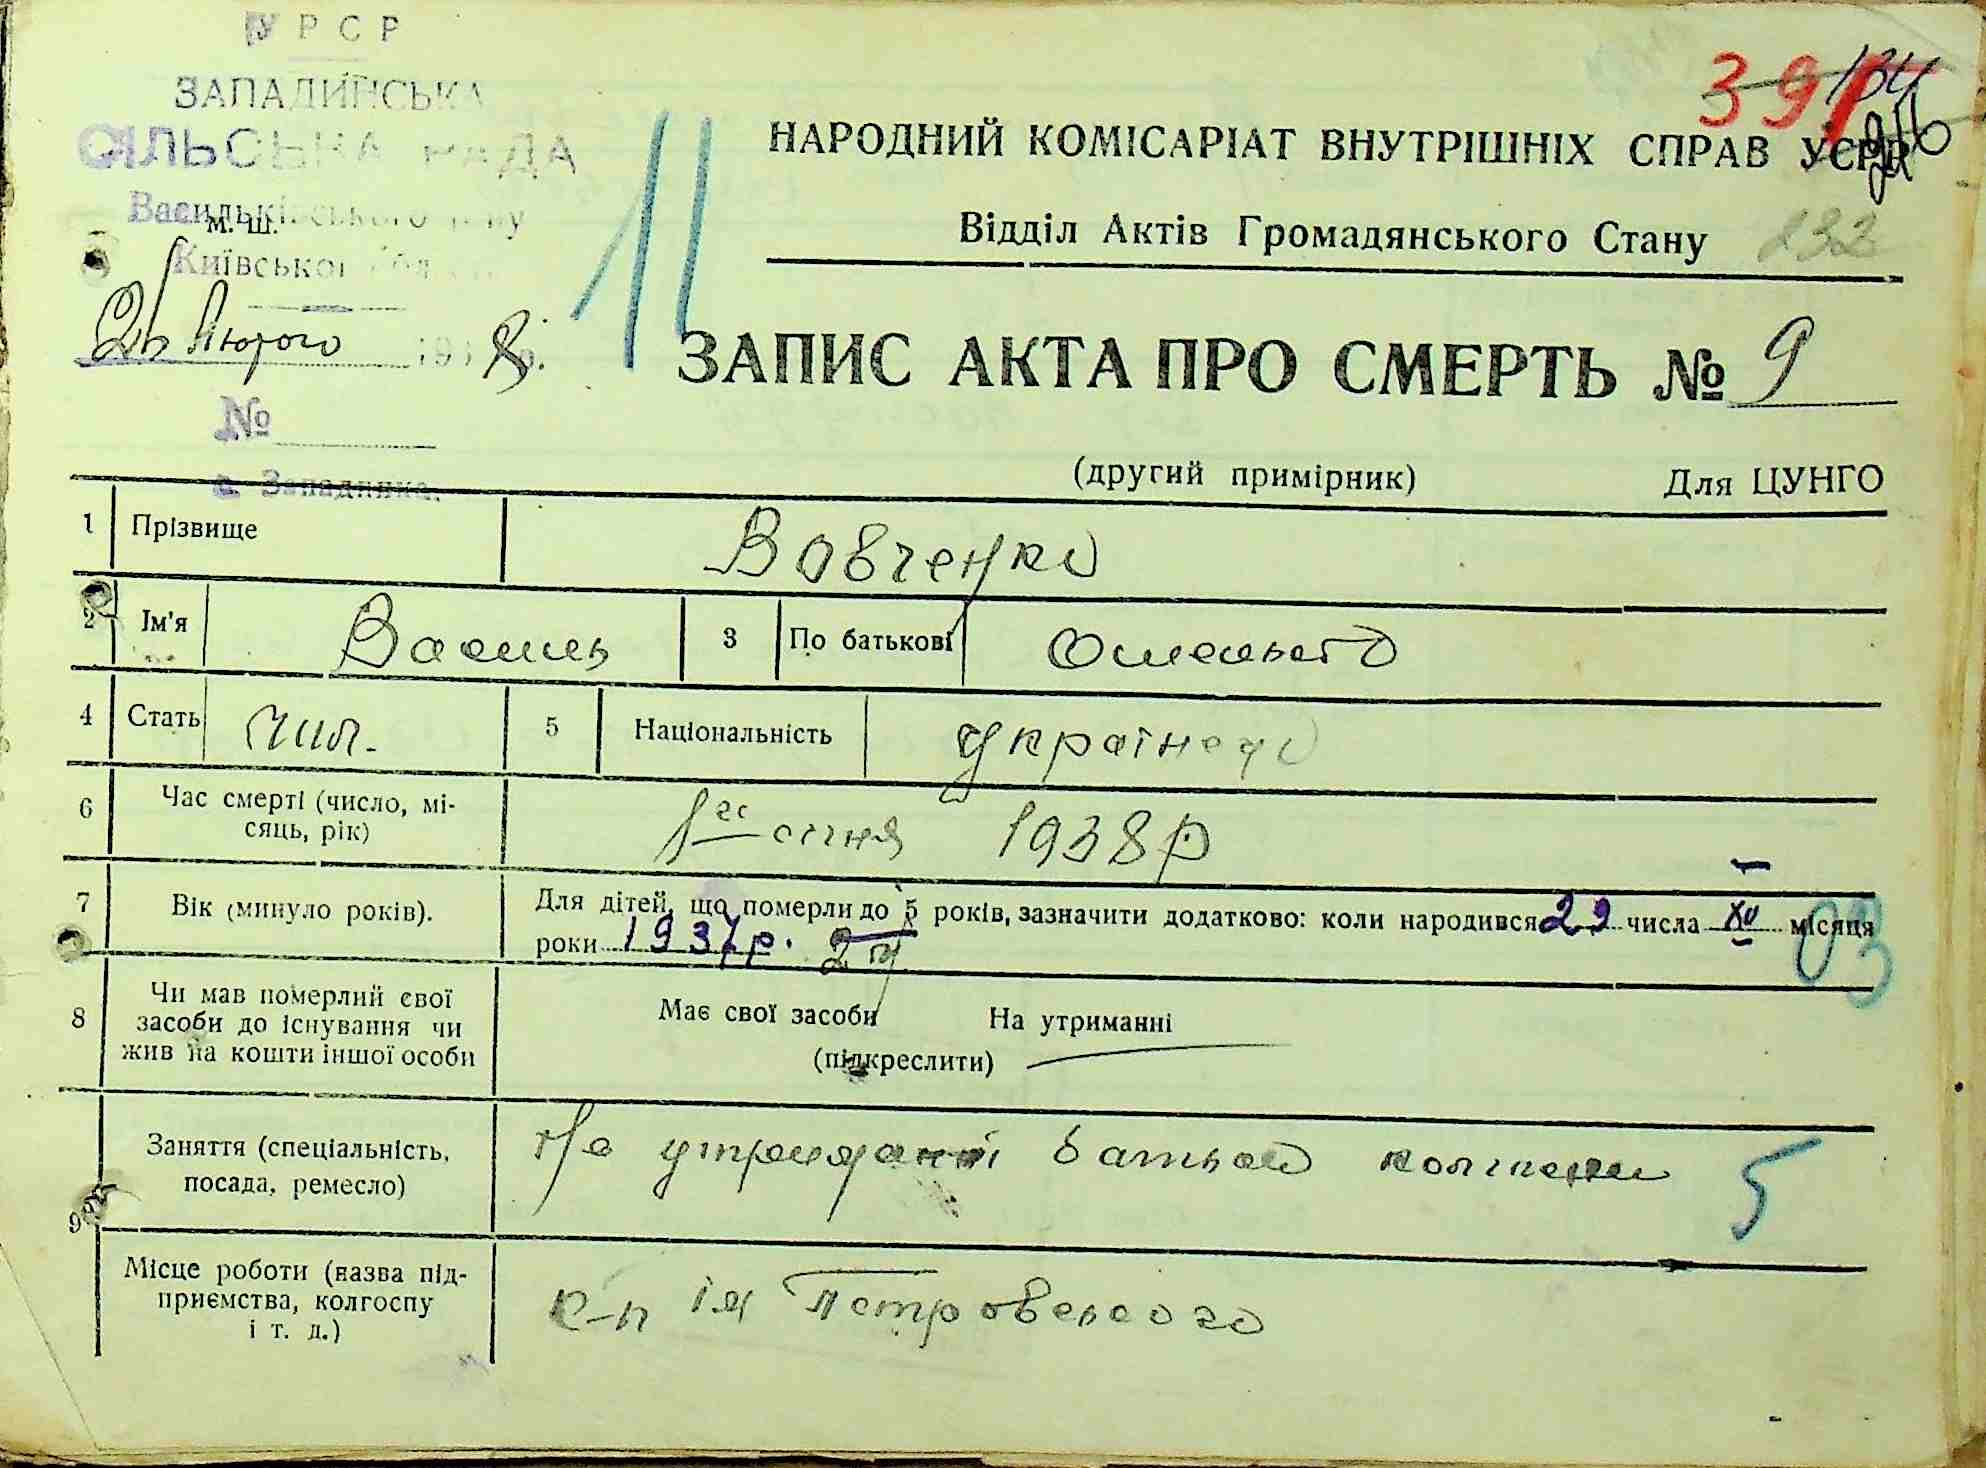 УРСР
ЗАПАДИНСЬКА
СІЛЬСЬКА РАДА
Васильківського р-ну
м. Ш.
Київської
26 Лютого 1938 р.
№
с. Западинка.
391
134
НАРОДНИЙ КОМІСАРІАТ ВНУТРІШНІХ СПРАВ УСРР
Відділ Актів Громадянського Стану
232
11
ЗАПИС АКТА ПРО СМЕРТЬ № 9
(другий примірник) Для ЦУНГО
1 Прізвище Вовченко
2 Ім'я Василь 3 По батькові Омельков
4 Стать чол. 5 Національність українець
6 Час смерті (число, мі-
сяць, рік) 1го січня 1938 р
7 Вік (минуло років).
Для дітей, що померли до 5 років, зазначити додатково: коли народився 29 числа XII місяця
роки 1937р. 2 д
03
8 Чи мав померлий свої
засоби до існування чи
жив на кошти іншої особи
Має свої засоби На утриманні
(підкреслити)
9 Заняття (спеціальність,
посада, ремесло)
На утриманні батьків колгоспн
5
Місце роботи (назва під-
приємства, колгоспу
і т. д.)
к-п ім Петровського